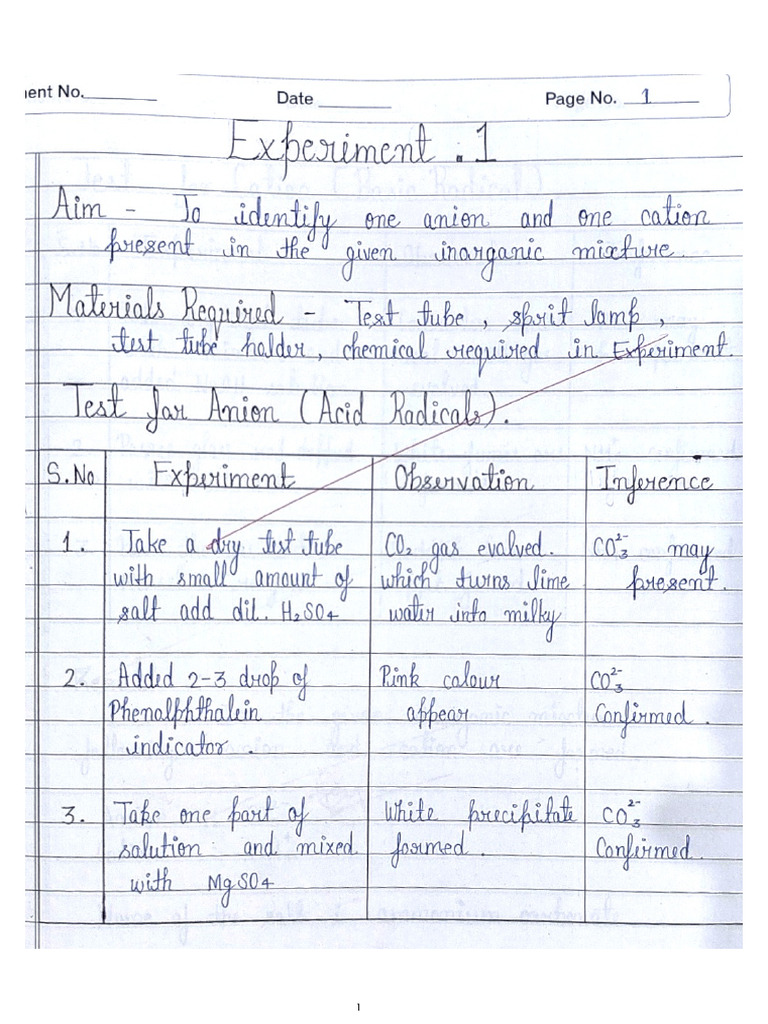 ent No.
Date
Page No. 1
Experiment . 1
Aim - To identify one anion and one cation
present in the given inarganic mixture.
Materials Required - Test tube, sprit lamp,
test tube holder, chemical required in Experiment.
Test far Anion (Acid Radicals).
S.No Experiment Observation Inference
1. Take a dry test tube CO₂ gas evalved. CO₃²⁻ may
with small amount of which turns lime present.
salt add dil. H₂SO₄ water into milky
2. Added 2-3 drop of Pink calour CO₃²⁻
Phenalphthalein appear Confirmed.
indicator.
3. Take one part of White precipitate CO₃²⁻
salution and mixed farmed. Confirmed.
with MgSO₄
1